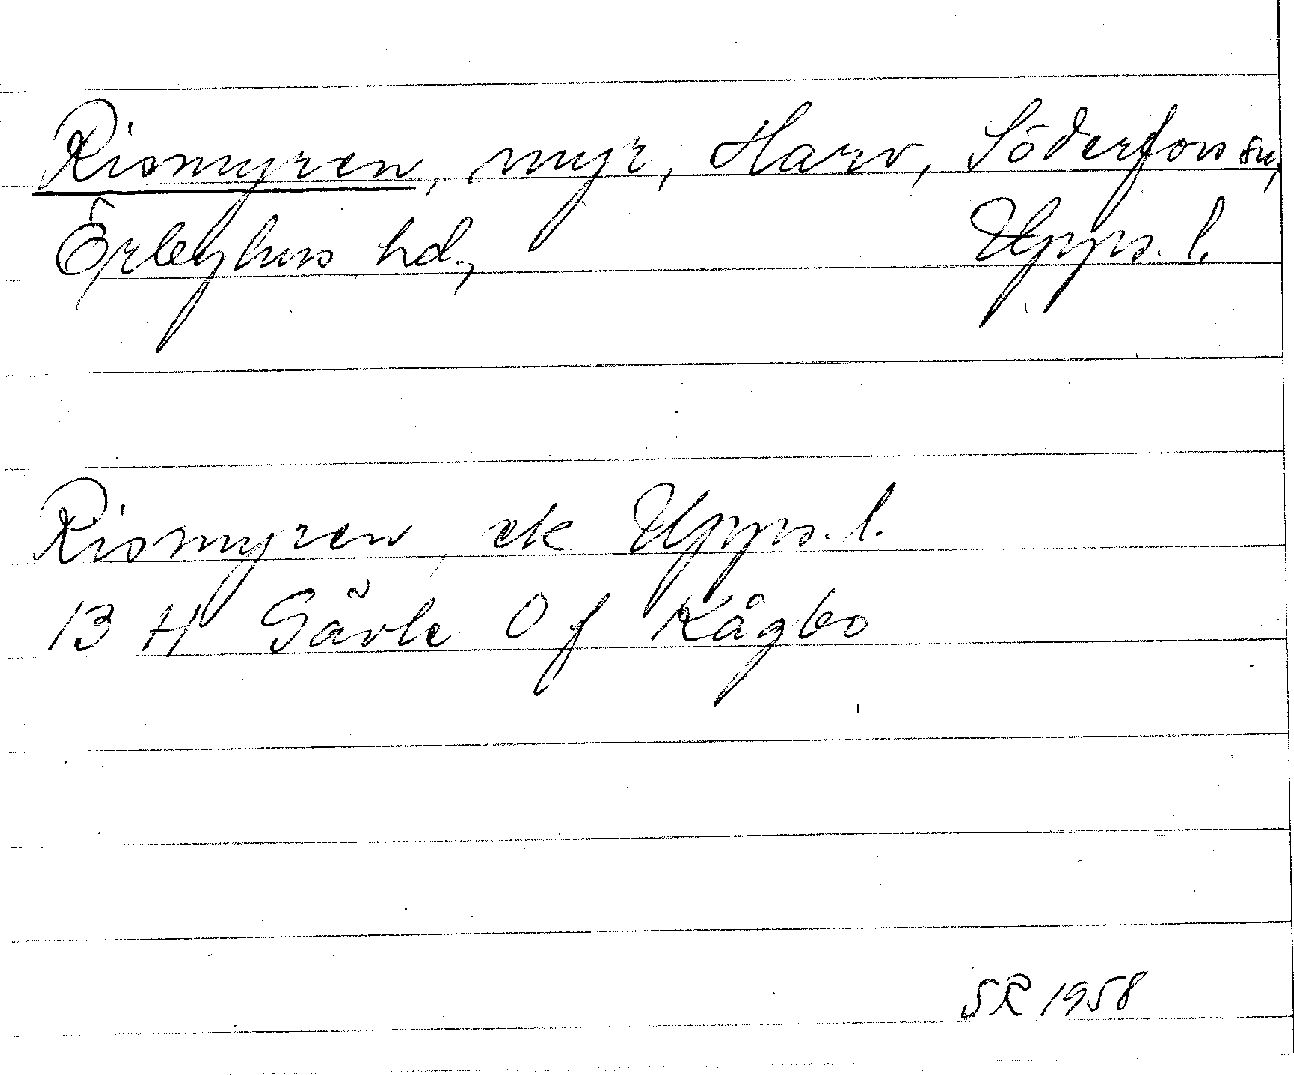 Rismyren, myr, Harv, Söderfors sn,
Örbyhus hd, Upps. l.
Rismyren, ek Upps. l.
13 H Gävle 0 f Kågbo
SR 1958